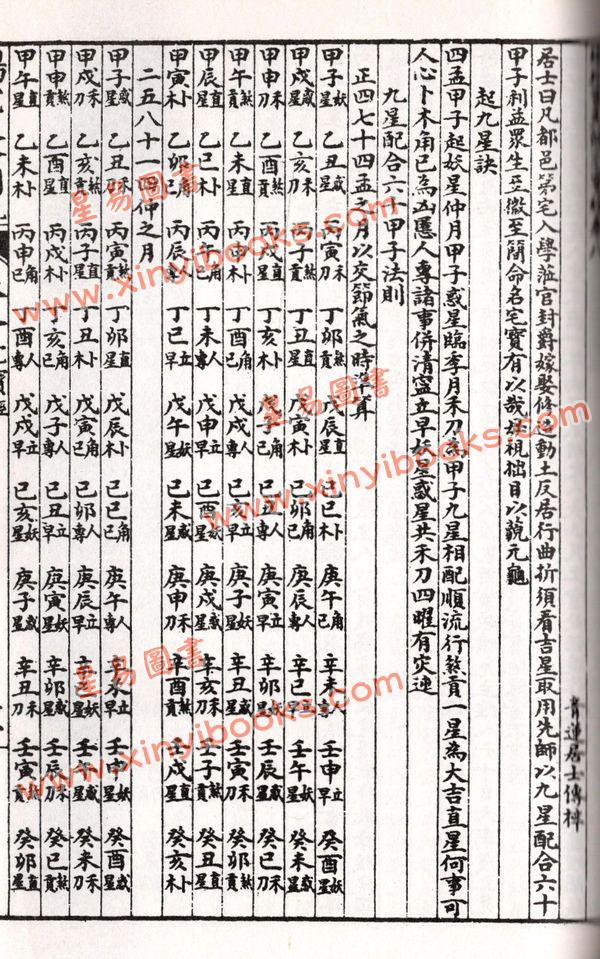 青蓮居士傳梓
居士曰凡都邑第宅入學蒞官封爵嫁娶修造動土反居行曲折須看吉星取用先師以九星配合六十
甲子利益眾生至微至簡命名宅寶有以哉視拙目以藐元龜
起九星訣
四孟甲子起妖星仲月甲子惑星臨季月禾刀為甲子九星相配順流行煞貢一星為大吉直星何事可
人心卜木角已為凶慝人專諸事併清寧立早妖星惑星共禾刀四曜有灾迍
九星配合六十甲子法則
正四七十四孟之月以交節氣之時準算
甲子妖星 乙丑惑星 丙寅禾刀 丁卯煞貢 戊辰直星 己巳卜木 庚午角已 辛未人專 壬申立早 癸酉妖星
甲戌惑星 乙亥禾刀 丙子煞貢 丁丑直星 戊寅卜木 己卯角已 庚辰人專 辛巳立早 壬午妖星 癸未惑星
甲申禾刀 乙酉煞貢 丙戌直星 丁亥卜木 戊子角已 己丑人專 庚寅立早 辛卯妖星 壬辰惑星 癸巳禾刀
甲午煞貢 乙未直星 丙申卜木 丁酉角已 戊戌人專 己亥立早 庚子妖星 辛丑惑星 壬寅禾刀 癸卯煞貢
甲辰直星 乙巳卜木 丙午角已 丁未人專 戊申立早 己酉妖星 庚戌惑星 辛亥禾刀 壬子煞貢 癸丑直星
甲寅卜木 乙卯角已 丙辰人專 丁巳立早 戊午妖星 己未惑星 庚申禾刀 辛酉煞貢 壬戌直星 癸亥卜木
二五八十一四仲之月
甲子惑星 乙丑禾刀 丙寅煞貢 丁卯直星 戊辰卜木 己巳角已 庚午人專 辛未立早 壬申妖星 癸酉惑星
甲戌禾刀 乙亥煞貢 丙子直星 丁丑卜木 戊寅角已 己卯人專 庚辰立早 辛巳妖星 壬午惑星 癸未禾刀
甲申煞貢 乙酉直星 丙戌卜木 丁亥角已 戊子人專 己丑立早 庚寅妖星 辛卯惑星 壬辰禾刀 癸巳煞貢
甲午直星 乙未卜木 丙申角已 丁酉人專 戊戌立早 己亥妖星 庚子惑星 辛丑禾刀 壬寅煞貢 癸卯直星
星易圖書
www.xinyibooks.com
星易圖書
www.xinyibooks.com
星易圖書
www.xinyibooks.com